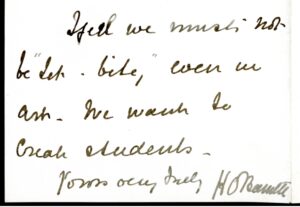 I feel we must not
be "tit-bity," even in
art - We want to
create students -
Yours very truly H O Barnett